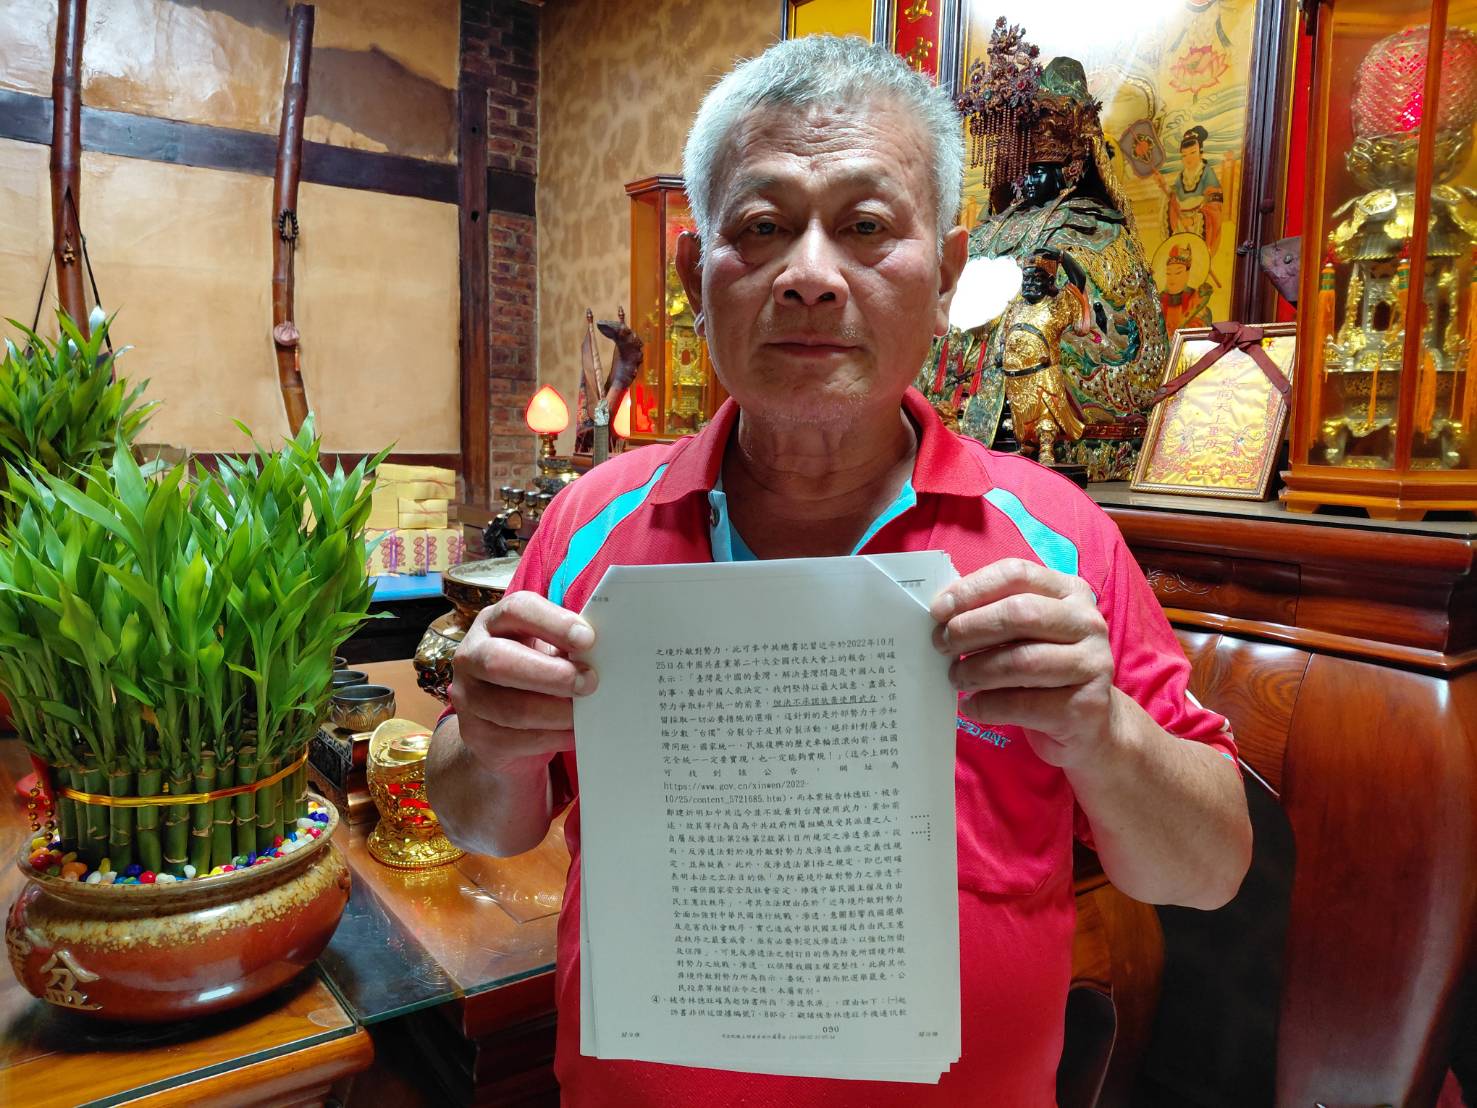 之境外敵對勢力，此可參中共總書記習近平於2022年10月
25日在中國共產黨第二十次全國代表大會上的報告：明確
表示：「臺灣是中國的臺灣。解決臺灣問題是中國人自己
的事，要由中國人來決定。我們堅持以最大誠意、盡最大
努力爭取和平統一的前景，但決不承諾放棄使用武力，保
留採取一切必要措施的選項，這針對的是外部勢力干涉和
極少數“台獨”分裂分子及其分裂活動，絕非針對廣大臺
灣同胞。國家統一、民族復興的歷史車輪滾滾向前，祖國
完全統一一定要實現，也一定能夠實現！」(迄今上網仍
可找到該公告，網址為
https://www.gov.cn/xinwen/2022-
10/25/content_5721685.htm)。而本案被告林德旺、被告
鄭建炘明知中共迄今並不放棄對台灣使用武力，業如前
述，故其等行為自為中共政府所屬組織及受其派遣之人，
自屬反滲透法第2條第2款第1目所規定之滲透來源。從
而，反滲透法對於境外敵對勢力及滲透來源之定義性規
定，並無疑義。此外，反滲透法第1條之規定，即已明確
表明本法之立法目的係「為防範境外敵對勢力之滲透干
預，確保國家安全及社會安定，維護中華民國主權及自由
民主憲政秩序」，考其立法理由在於「近年境外敵對勢力
全面加強對中華民國進行統戰、滲透，意圖影響我國選舉
及危害我社會秩序，實已造成中華民國主權及自由民主憲
政秩序之嚴重威脅，亟有必要制定反滲透法，以強化防衛
及保障」，可見反滲透法之制訂目的係為防免所謂境外敵
對勢力之統戰、滲透，以保障我國主權完整性，此與其他
非境外敵對勢力所為指示、委託、資助而犯選舉罷免、公
民投票等相關法令之情，本屬有別。
④、被告林德旺確為起訴書所指「滲透來源」，理由如下：㈠起
訴書非供述證據編號7、8部分：觀諸被告林德旺手機通訊軟
090
盆